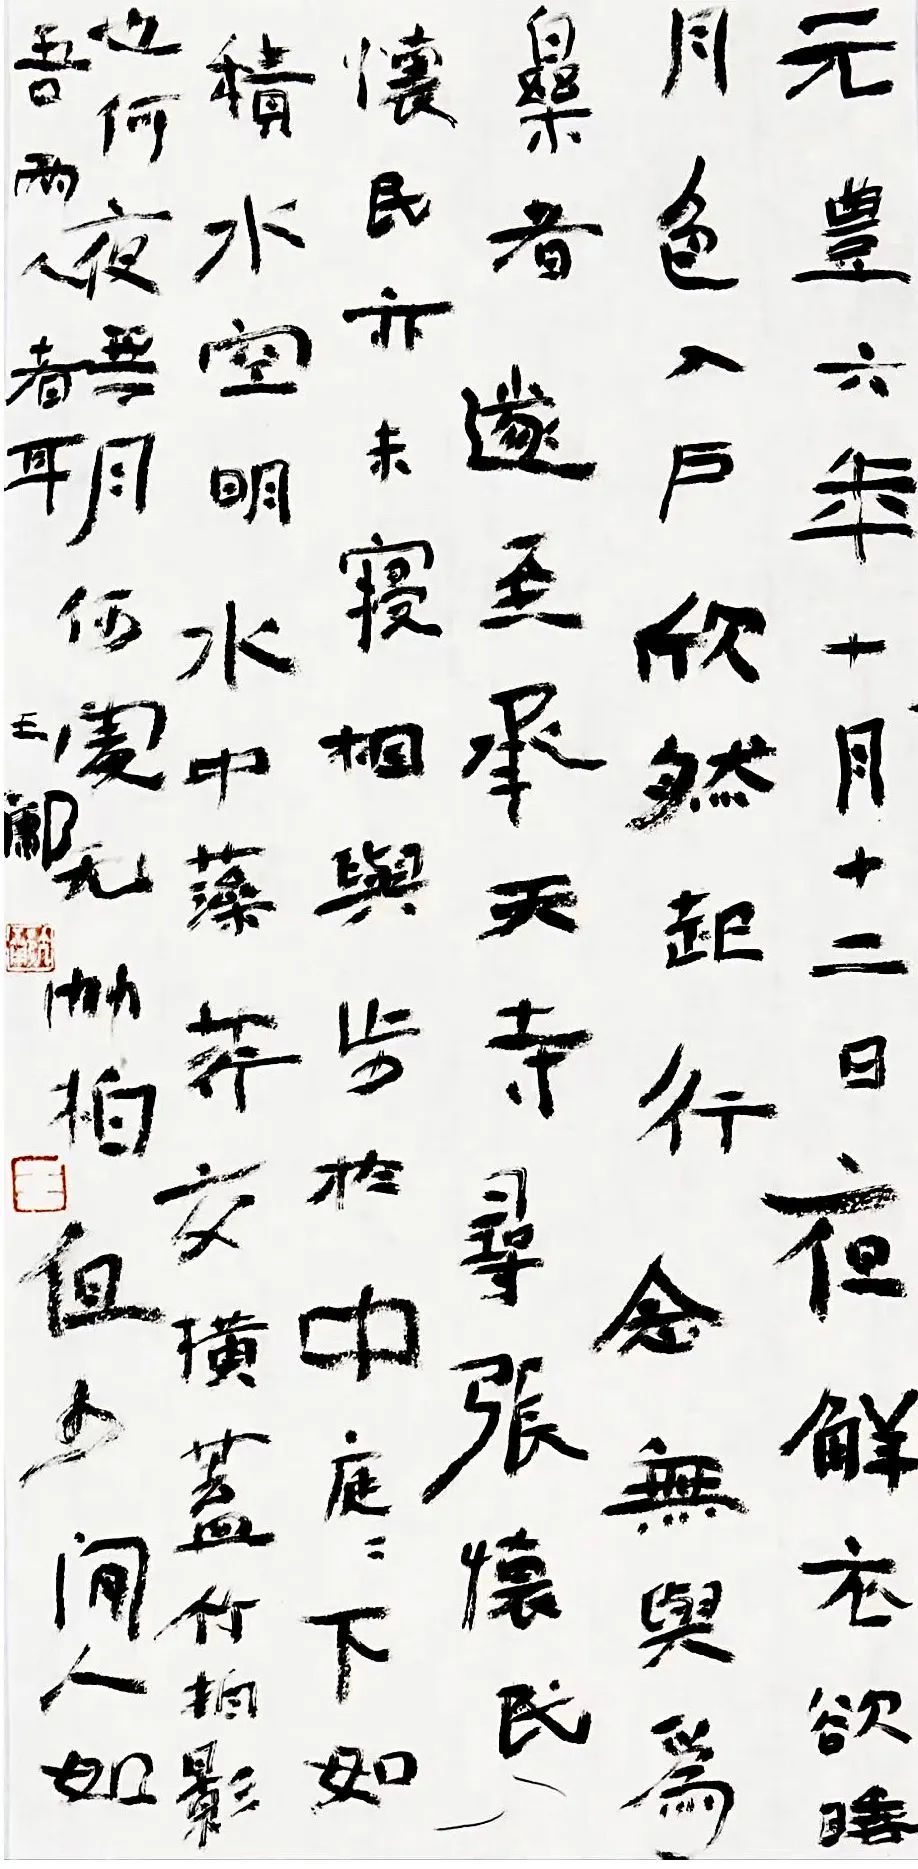 元豐六年十月十二日夜解衣欲睡
月色入戶欣然起行念無與爲
樂者遂至承天寺尋張懷民
懷民亦未寢相與步於中庭庭下如
積水空明水中藻荇交橫蓋竹柏影
也何夜無月何處无竹柏但少閒人如
吾兩人者耳 王